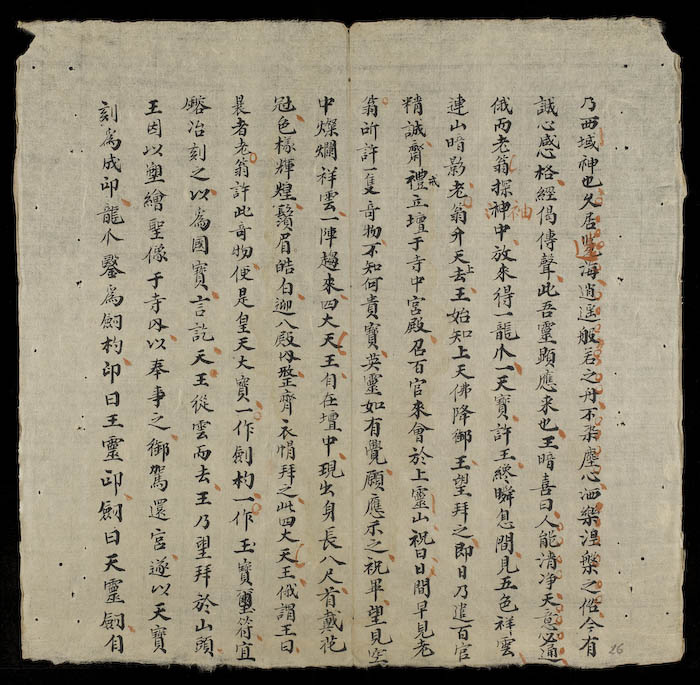 乃西域神也久居覺海逍遥般若之舟不染塵心洒樂涅槃之俗今有
誠心感格經偈傳聲此吾靈顕應来也王暗喜曰人能清净天意必通
俄而老翁探神中放来得一龍爪一天寶許王終瞬息間見五色祥雲
袖
連山暗影老翁升天上去王始知上天佛降御王望拜之即日乃遣百官
精誠齋戒禮立壇于寺中宮殿召百官来會於上靈山祝曰日間早見老
翁所許一隻竒物不知何貴寶英靈如有覺願應示之祝畢望見空
中燦爛祥雲一陣趨来四大天王自在壇中現出身長八尺首戴花
冠色樣輝煌鬚眉皓白迎入殿内整齊衣帽拜之此四大天王俄謂王曰
曩者老翁許此竒物便是皇天大寶一作劍杓一作玉寶璽符宜
鎔冶刻之以為國寶言訖天王從雲而去王乃望拜於山頭
王因以塑繪聖像于寺内以奉事之御駕還宮遂以天寶
刻為成印龍爪鑿為劍杓印曰王靈印劍曰天靈劍自
26